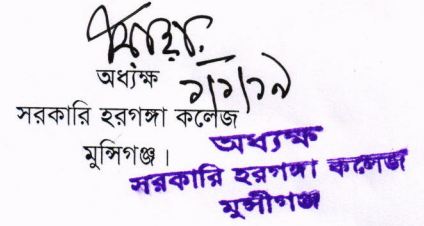 অধ্যক্ষ
সরকারি হরগঙ্গা কলেজ
মুন্সিগঞ্জ।
অধ্যক্ষ
সরকারি হরগঙ্গা কলেজ
মুন্সীগঞ্জ